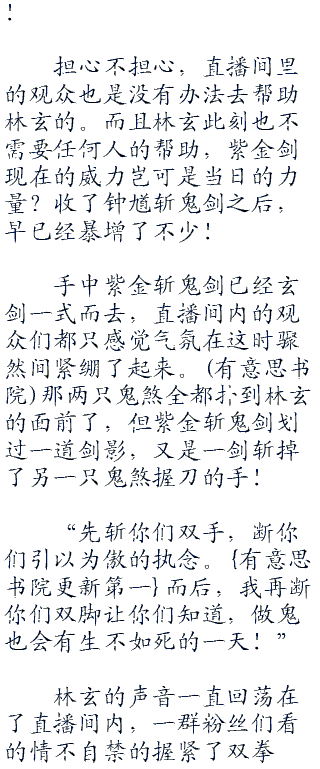 !
担心不担心，直播间里
的观众也是没有办法去帮助
林玄的。而且林玄此刻也不
需要任何人的帮助，紫金剑
现在的威力岂可是当日的力
量？收了钟馗斩鬼剑之后，
早已经暴增了不少！
手中紫金斩鬼剑已经玄
剑一式而去，直播间内的观
众们都只感觉气氛在这时骤
然间紧绷了起来。(有意思书
院)那两只鬼煞全都扑到林玄
的面前了，但紫金斩鬼剑划
过一道剑影，又是一剑斩掉
了另一只鬼煞握刀的手！
“先斩你们双手，断你
们引以为傲的执念。{有意思
书院更新第一}而后，我再断
你们双脚让你们知道，做鬼
也会有生不如死的一天！”
林玄的声音一直回荡在
了直播间内，一群粉丝们看
的情不自禁的握紧了双拳